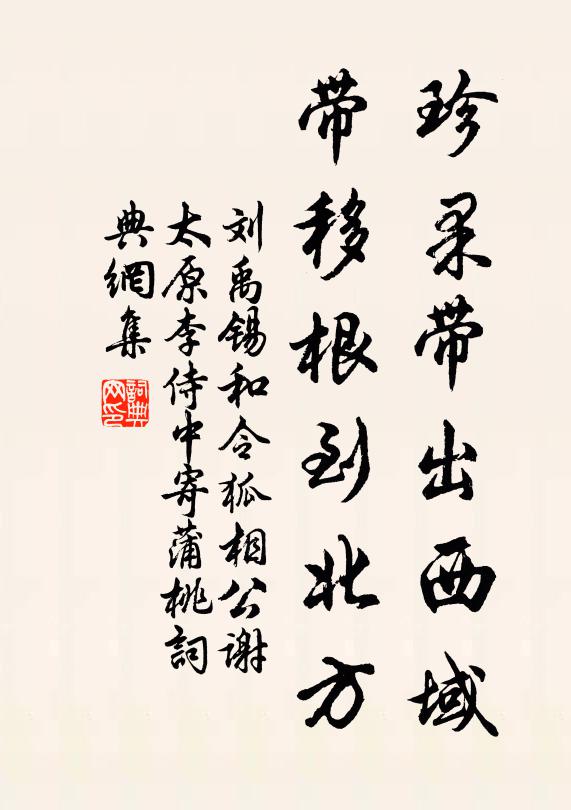 珍果带出西域
带移根到北方
刘禹锡和令狐相公谢
太原李侍中寄蒲桃詞
典網集
詞典网印